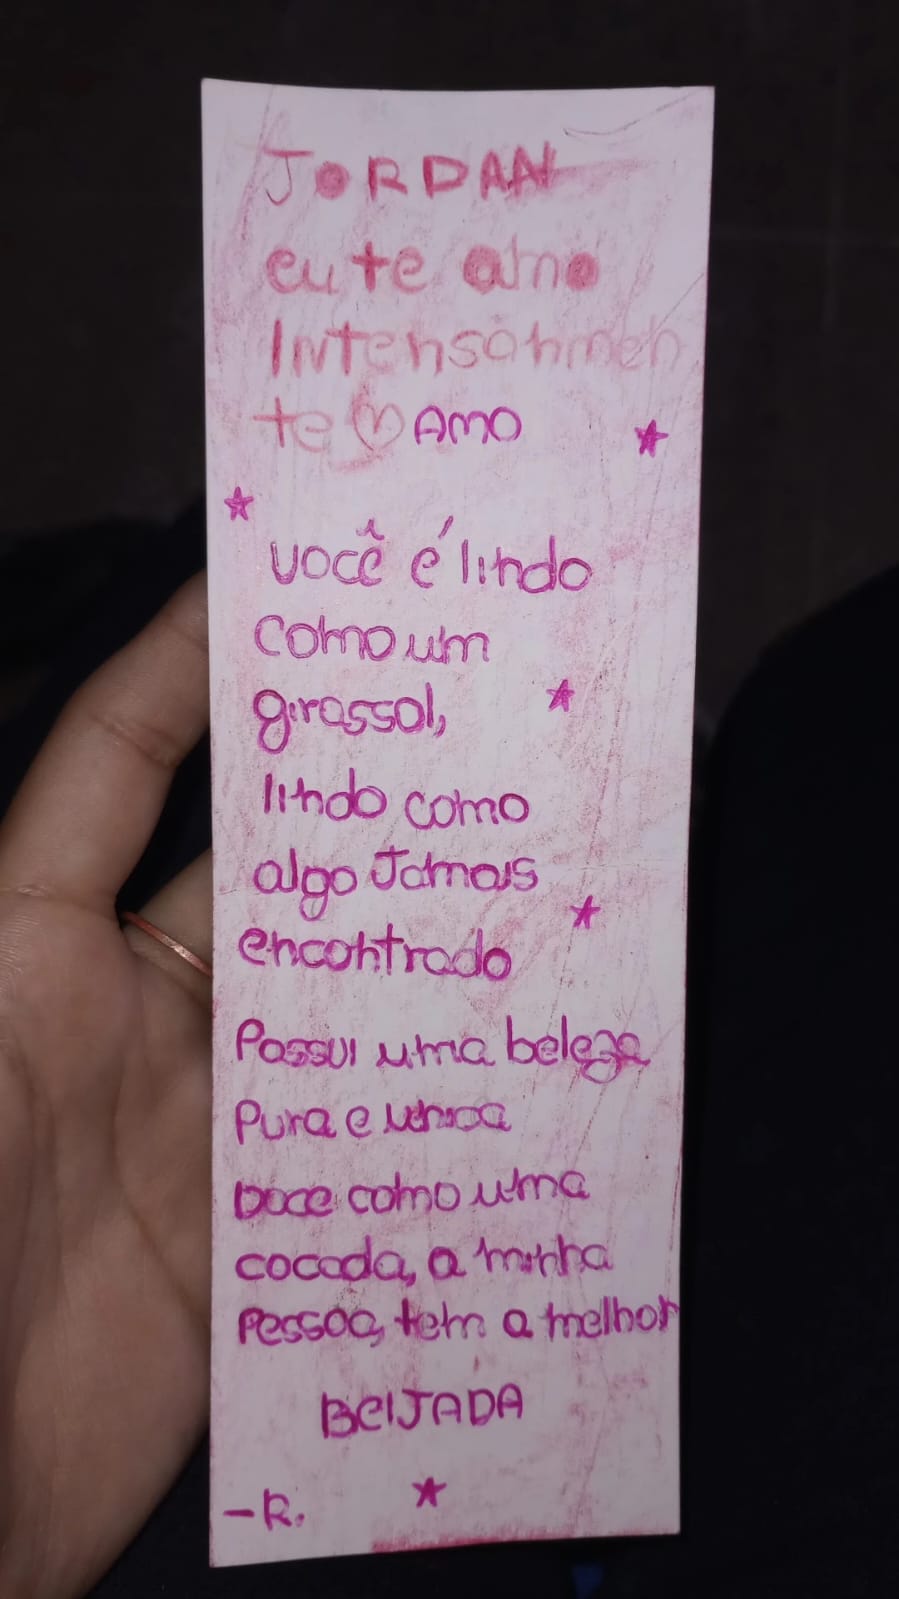 JORDAN
eu te amo
Intensanmen
te AMO
você é lindo
como um
girassol,
lindo como
algo Jamais
encontrado
Possui uma beleza
Pura e unica
Doce como uma
cocada, a minha
Pessoa, tem a melhor
BEIJADA
-R.